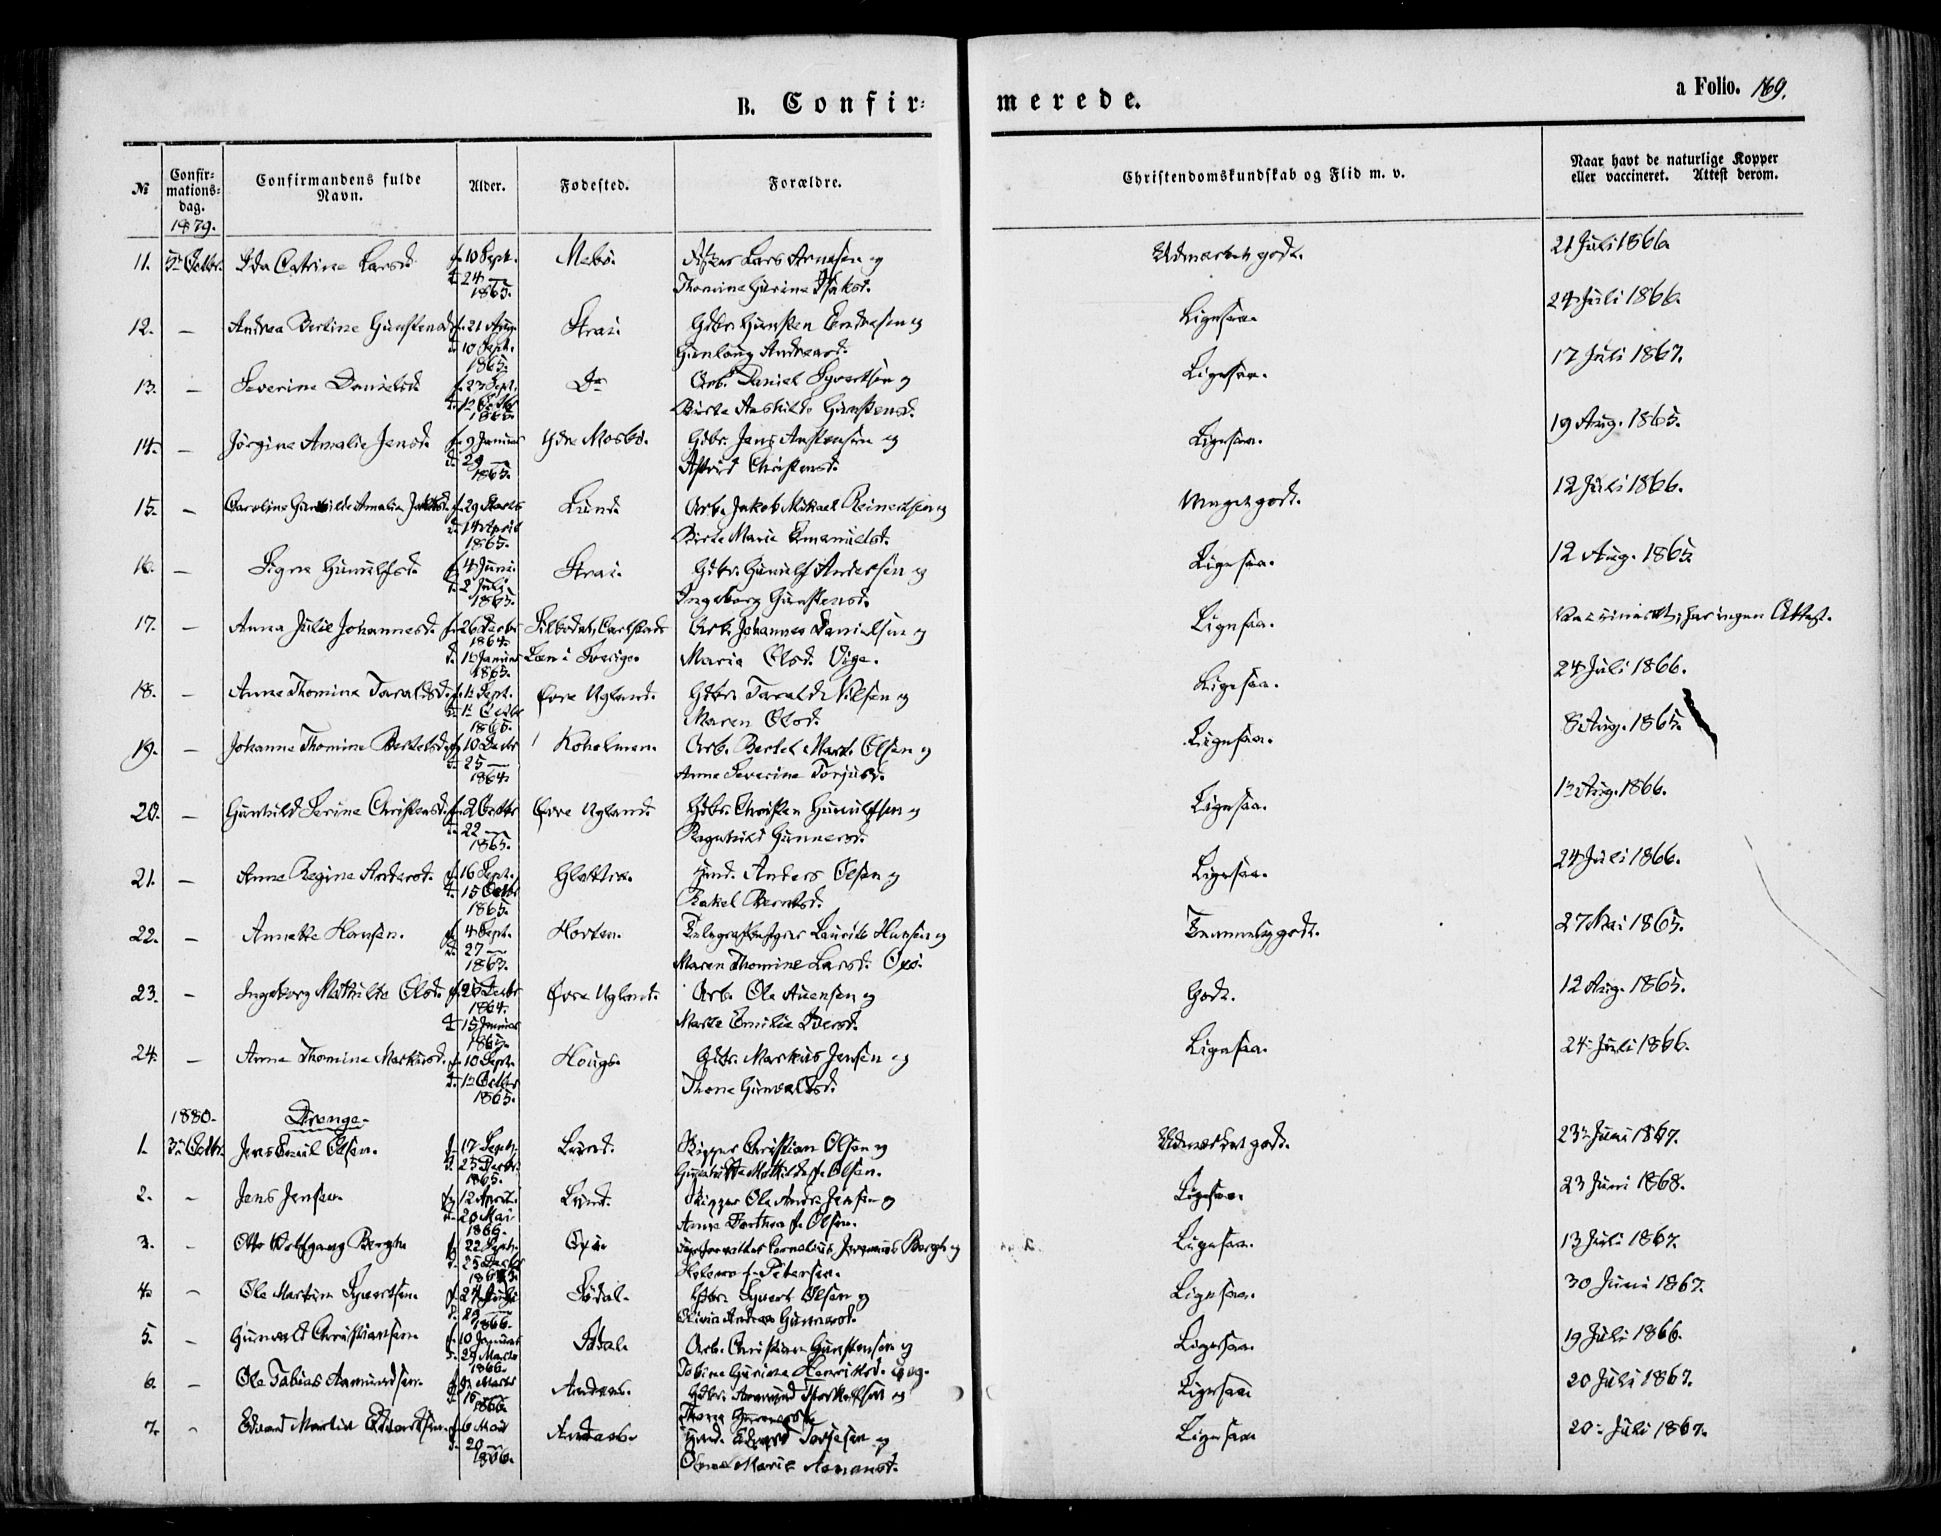 B. Confir-
merede.
a Folio. 169.
№ Confirmations-dag. Confirmandens fulde Navn. Alder. Fødested. Forældre. Christendomskundskab og Flid m. v. Naar havt de naturlige Kopper eller vaccineret. Attest derom.
1879.
11. 5te Octbr. Ida Catrine Larsd. f. 10 Sept. Mebø. Fisker Lars Arnesen og Udmærket godt. 21 Juli 1866
d. 24 — 1865. Thomine Gurine Isaksd.
12. — Andrea Bertine Gunstensd. f. 21 Aug. Strai. Gdbr. Gunsten Endresen og Ligesaa. 24 Juli 1866.
d. 10 Sept. 1865. Gunlaug Andreasd.
13. — Severine Danielsd. f. 23 Sept. Do Arb. Daniel Syvertsen og Ligesaa. 17 Juli 1867.
d. 12 Octbr 1865. Birte Aashilde Gunstensd.
14. — Jörgine Amalie Jensd. f. 9 Januar Ydre Mosbö. Gdbr. Jens Anstensen og Ligesaa. 19 Aug. 1865.
d. 29 — 1865. Astrid Christensd.
15. — Caroline Gunhilde Amalie Jakobsd. f. 29 Marts Lund. Arb. Jakob Mikael Reinertsen og Meget godt. 12 Juli 1866.
d. 14 April 1865. Birte Marie Emanuelsd.
16. — Signe Gunulfsd. f. 4 Juni Strai. Gdbr. Gunulf Andersen og Ligesaa. 12 Aug. 1865.
d. 2 Juli 1865. Ingeborg Gunstensd.
17. — Anna Julie Johannesd. f. 26 Decbr 1864. Silbodal, Carlstads Arb. Johannes Danielsen og Ligesaa. Vaccineret, har ingen Attest.
d. 15 Januar 1865. Læn i Sverige. Maria Olsd. Vige.
18. — Anne Thomine Taraldsd. f. 1 Sept. Övre Ugland. Gdbr. Tarald Nilsen og Ligesaa. 24 Juli 1866.
d. 1 Octbr 1865. Maren Olsd.
19. — Johanne Thomine Bertelsd. f. 10 Decbr Koholmen. Arb. Bertel Mart. Olsen og Ligesaa. 8 Aug. 1865.
d. 25 — 1864. Anne Severine Torjusd.
20. — Gunhild Serine Christensd. f. 2 Octbr Övre Ugland. Gdbr. Christen Gunulfsen og Ligesaa. 1 Aug. 1866.
d. 22 — 1865. Ragnhild Gunnersd.
21. — Anne Regine Andersd. f. 16 Sept. Glattre. Hmd. Anders Olsen og Ligesaa. 24 Juli 1866.
d. 15 Octbr 1865. Rakel Berntsd.
22. — Annette Hansen. f. 4 Sept. Horten. Telegrafbestyrer Laurits Hansen og Temmelig godt. 27 Mai 1865.
d. 27 — 1863. Maren Thomine Larsd. Oxö.
23. — Ingeborg Mathilde Olsd. f. 25 Decbr 1864. Övre Ugland. Arb. Ole Auensen og Godt. 12 Aug. 1865.
d. 15 Januar 1865. Marte Emilie Iversd.
24. — Anne Thomine Markusd. f. 10 Sept. Houge. Gdbr. Markus Jensen og Ligesaa. 24 Juli 1866.
d. 1 Octbr 1865. Thone Gunvaldsd.
1880. Drenge.
1. 3 Octbr. Jens Emil Olsen. f. 17 Septr. Lund. Skipper Christian Olsen og Udmærket godt. 23 Juni 1867.
d. 25 Decbr. 1865. Mathilde f. Olsen.
2. — Jens Jensen. f. 12 April. Lund. Skipper Ole Andr. Jensen og Ligesaa. 23 Juni 1868.
d. 20 Mai 1866. Anne Dorthea f. Olsen.
3. — Otto Wolfgang Bergh. f. 22 Septr. Oxö. Fyrforvalter Cornelius Bergh og Ligesaa. 13 Juli 1867.
d. 25 Decbr 1865. Helene f. Petersen.
4. — Ole Martin Syvertsen. f. 24 Södal. Gdbr. Syvert Olsen og Ligesaa. 30 Juni 1867.
d. 29 — 1866. Olivia Andrea Gunnersd.
5. — Gunvald Christiansen. f. 10 Januar Södal. Arb. Christian Gunstensen og Ligesaa. 19 Juli 1866.
d. 29 Marts 1866. Tobine Gurine Henriksd.
6. — Ole Tobias Aamundsen. f. Marts Andaas. Gdbr. Aamund Thorkelsen og Ligesaa 20 Juli 1867.
1866. Thone
7. — Edvard Martin Edvardsen. f. 6 Mai Andaas. Hmd. Edvard Terjesen og Ligesaa 20 Juli 1867.
d. 20 — 1866. Marie Aamunsd.